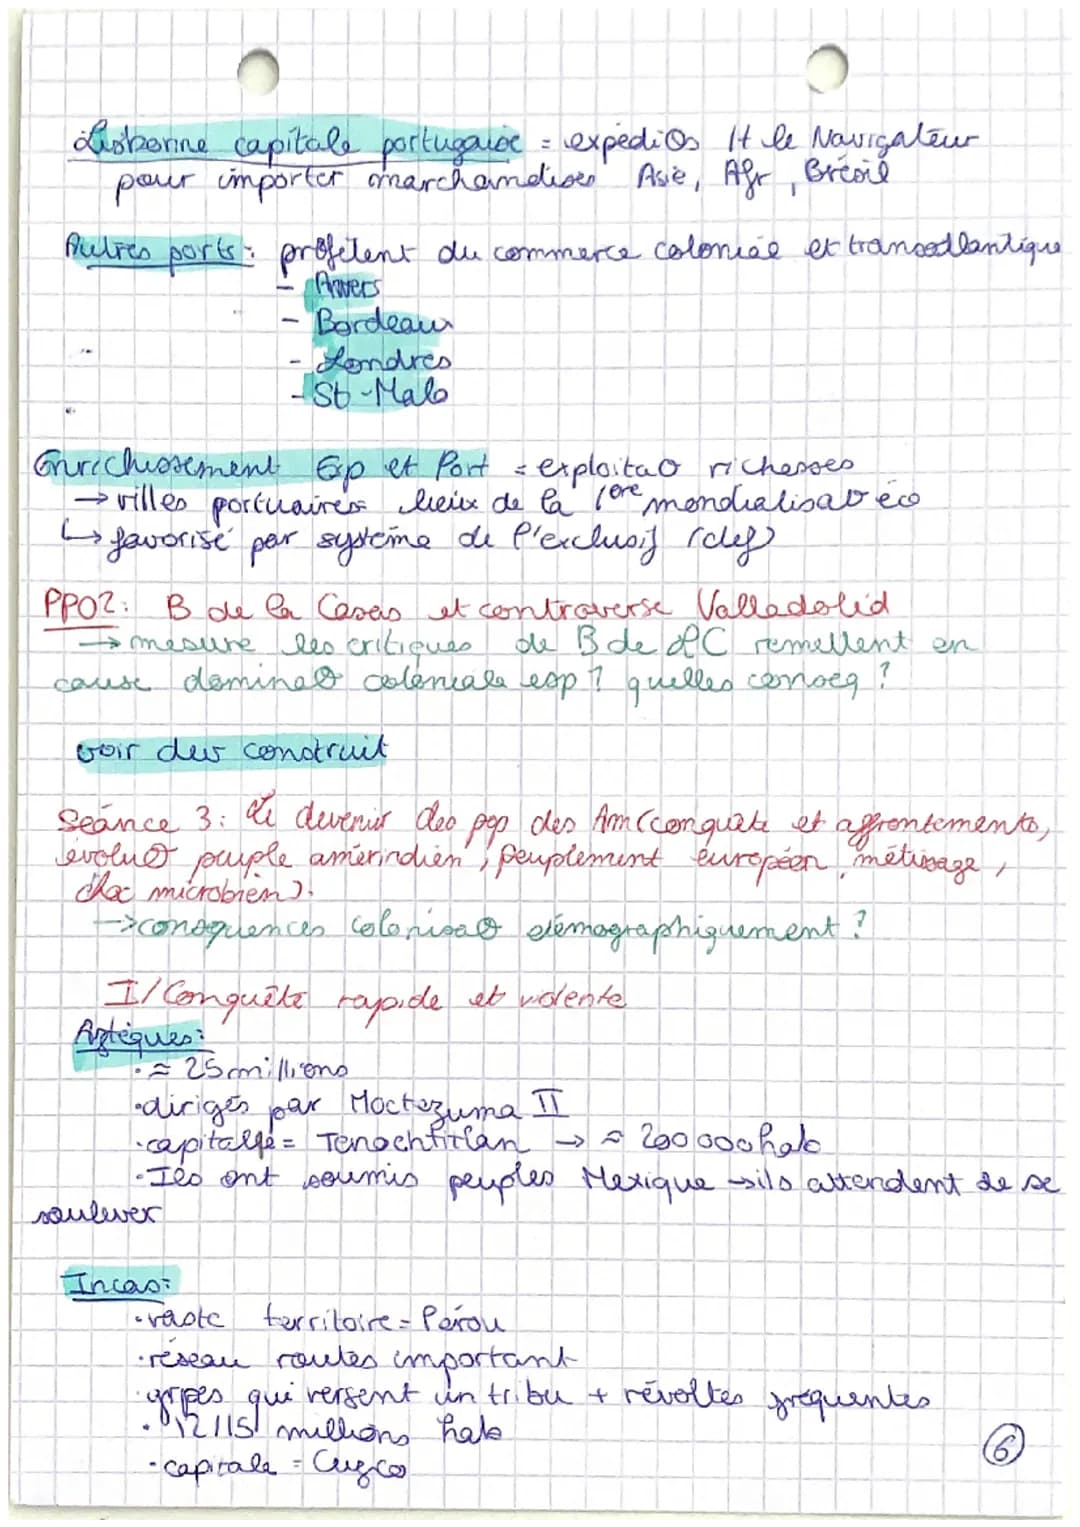 Lisbonne capitale portugaise = expédiOs H le Navigateur
pour importer marchandises Asie, Afr, Brésil
Autres ports: profitent du commerce colonial et transatlantique
- Anvers
- Bordeaux
- Londres
- St-Malo
Enrichissement Esp et Port = exploitaO richesses
→ villes portuaires lieux de la 1ère mondialisat éco
↳ favorisé par système de l'exclusif (def)
PPO2: B de la Casas et controverse Valladolid
→ mesure les critiques de B de LC remettent en
cause dominaO coloniale esp ? quelles conséq ?
voir dev construit
Séance 3: Le devenir des pop des Am (conquête et affrontements,
évoluO peuple amérindien, peuplement européen, métissage,
choc microbien).
→ consquences colonisaO démographiquement ?
I/ Conquête rapide et violente
Aztèques:
• ≈ 25 millions
• dirigés par Moctezuma II
• capitale = Tenochtitlan → ≈ 200 000 hab
• Ils ont soumis peuples Mexique → ils attendent de se
soulever
Incas:
• vaste territoire = Pérou
• réseau routes important
• grpes qui versent un tribu + révoltes fréquentes
• 12/15 millions hab
• capitale = Cuzco
6